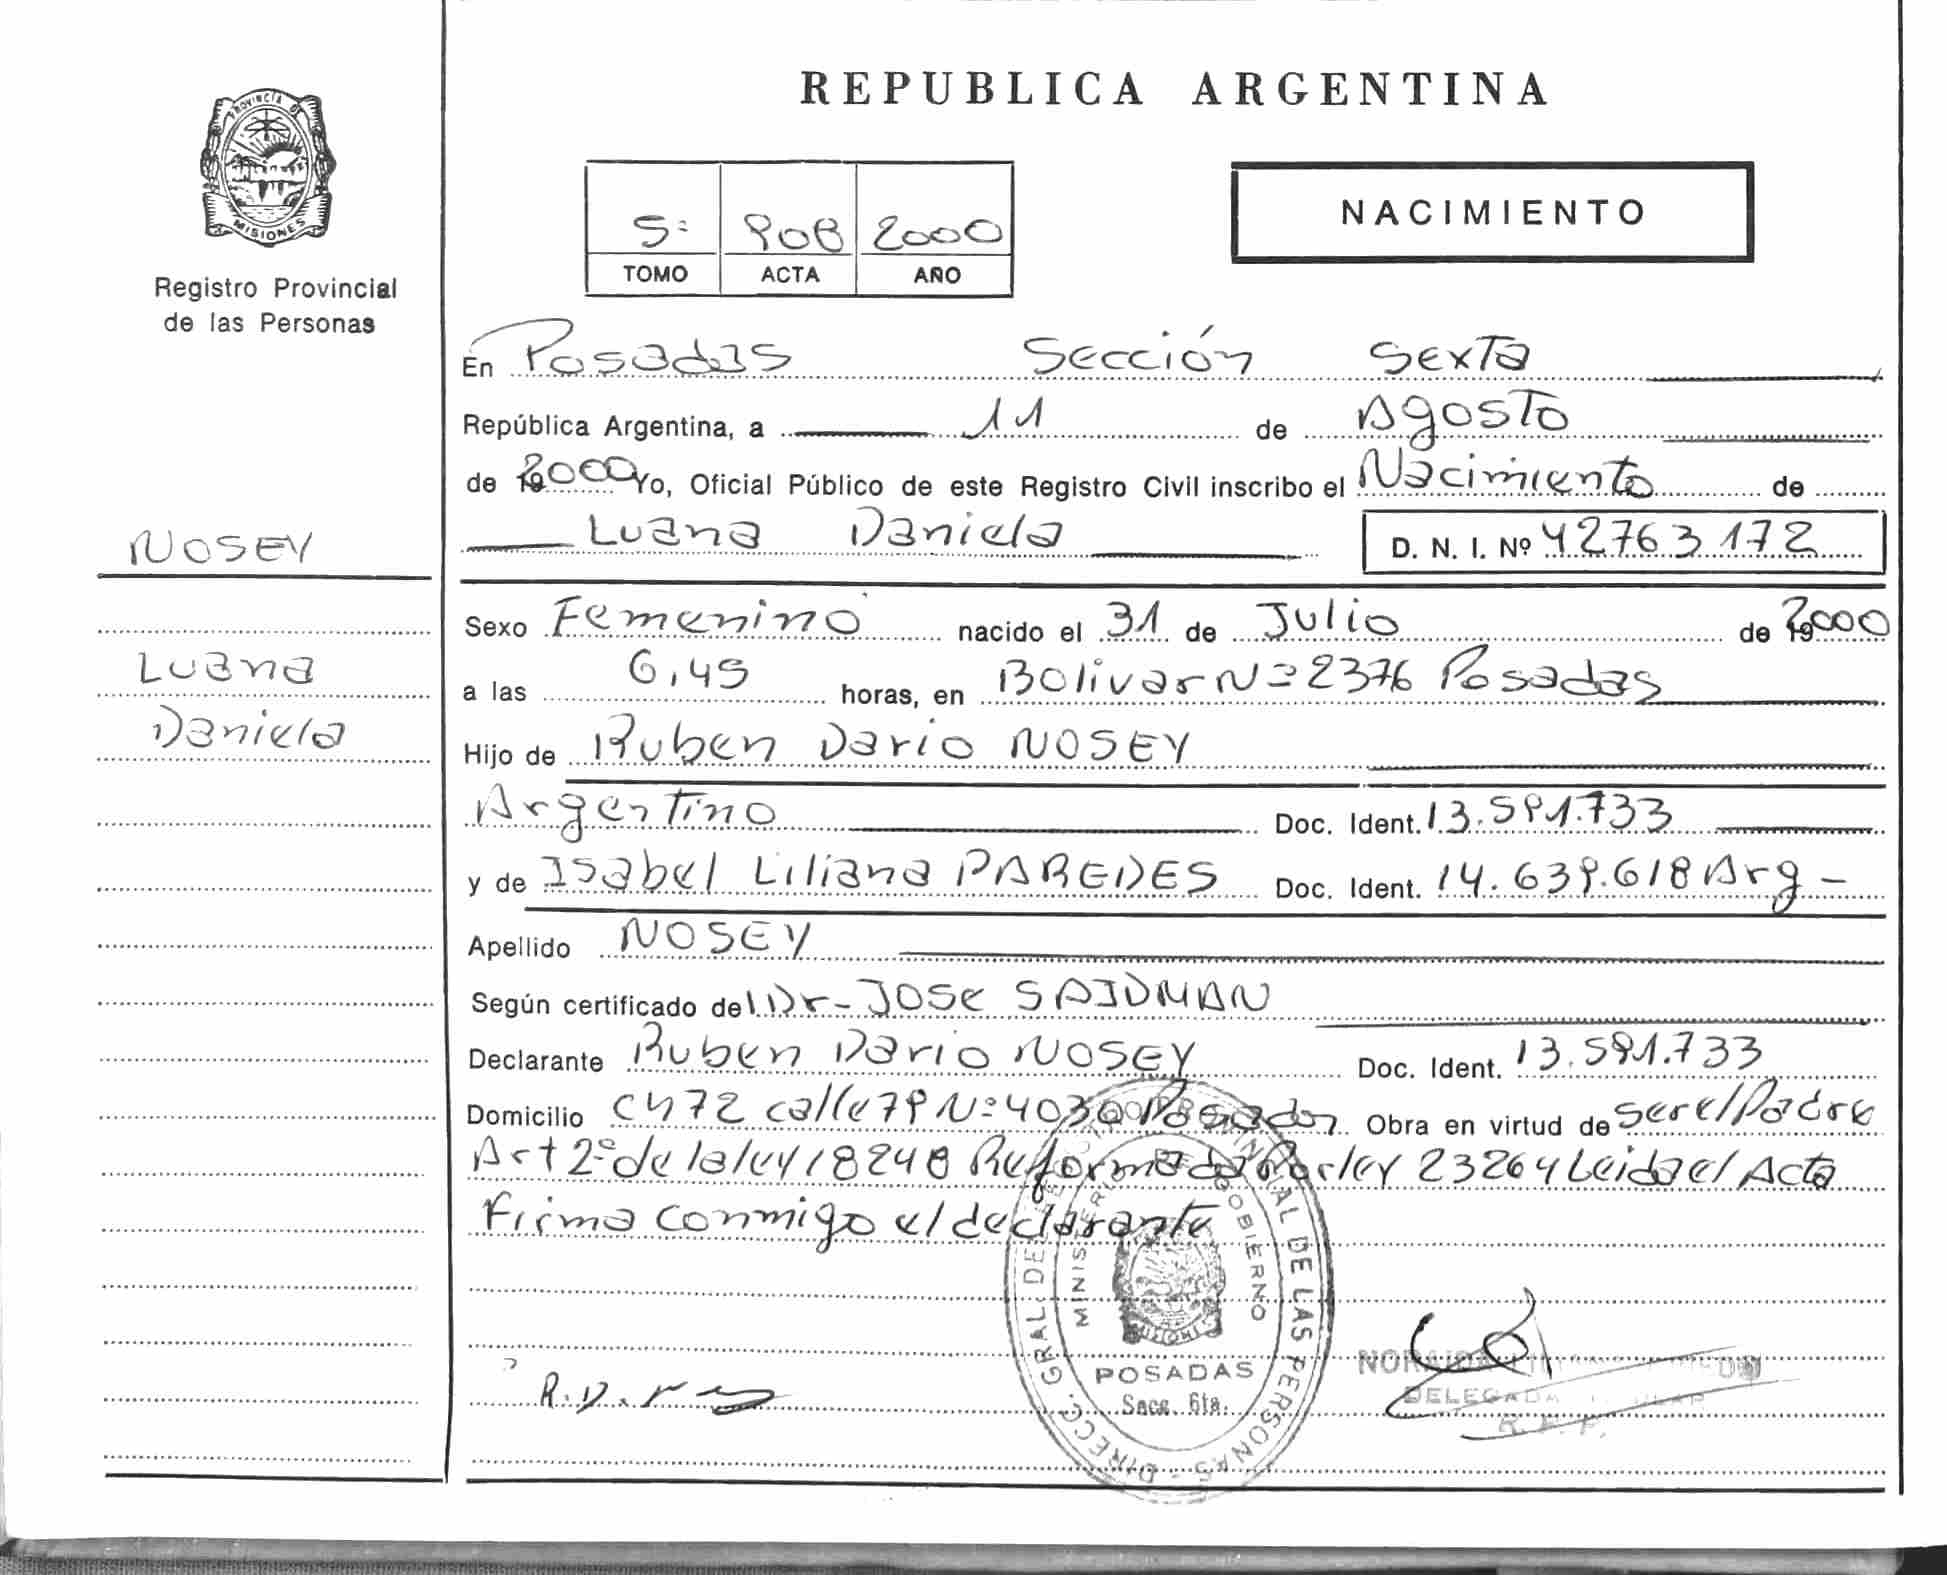 PROVINCIA DE
MISIONES
Registro Provincial
de las Personas
NOSEY
Luana
Daniela
REPUBLICA ARGENTINA
5º 908 2000
TOMO ACTA AÑO
NACIMIENTO
En Posadas Sección Sexta
República Argentina, a 11 de Agosto
de 2000 Yo, Oficial Público de este Registro Civil inscribo el Nacimiento de
Luana Daniela D. N. I. Nº 42763172
Sexo Femenino nacido el 31 de Julio de 2000
a las 6,45 horas, en Bolivar Nº 2376 Posadas
Hijo de Ruben Dario NOSEY
Argentino Doc. Ident. 13.591.733
y de Isabel Liliana PAREDES Doc. Ident. 14.639.618 Arg-
Apellido NOSEY
Según certificado del Dr- JOSE SAIDMAN
Declarante Ruben Dario NOSEY Doc. Ident. 13.591.733
Domicilio CH 72 calle 79 Nº 4030 Posadas Obra en virtud de ser el Padre
Art 2º de la ley 18248 Reformada Por ley 23264 Leida el Acta
Firma conmigo el declarante
MINISTERIO DE GOBIERNO
POSADAS
Secc. 6ta.
R.D. 
DELEGADA